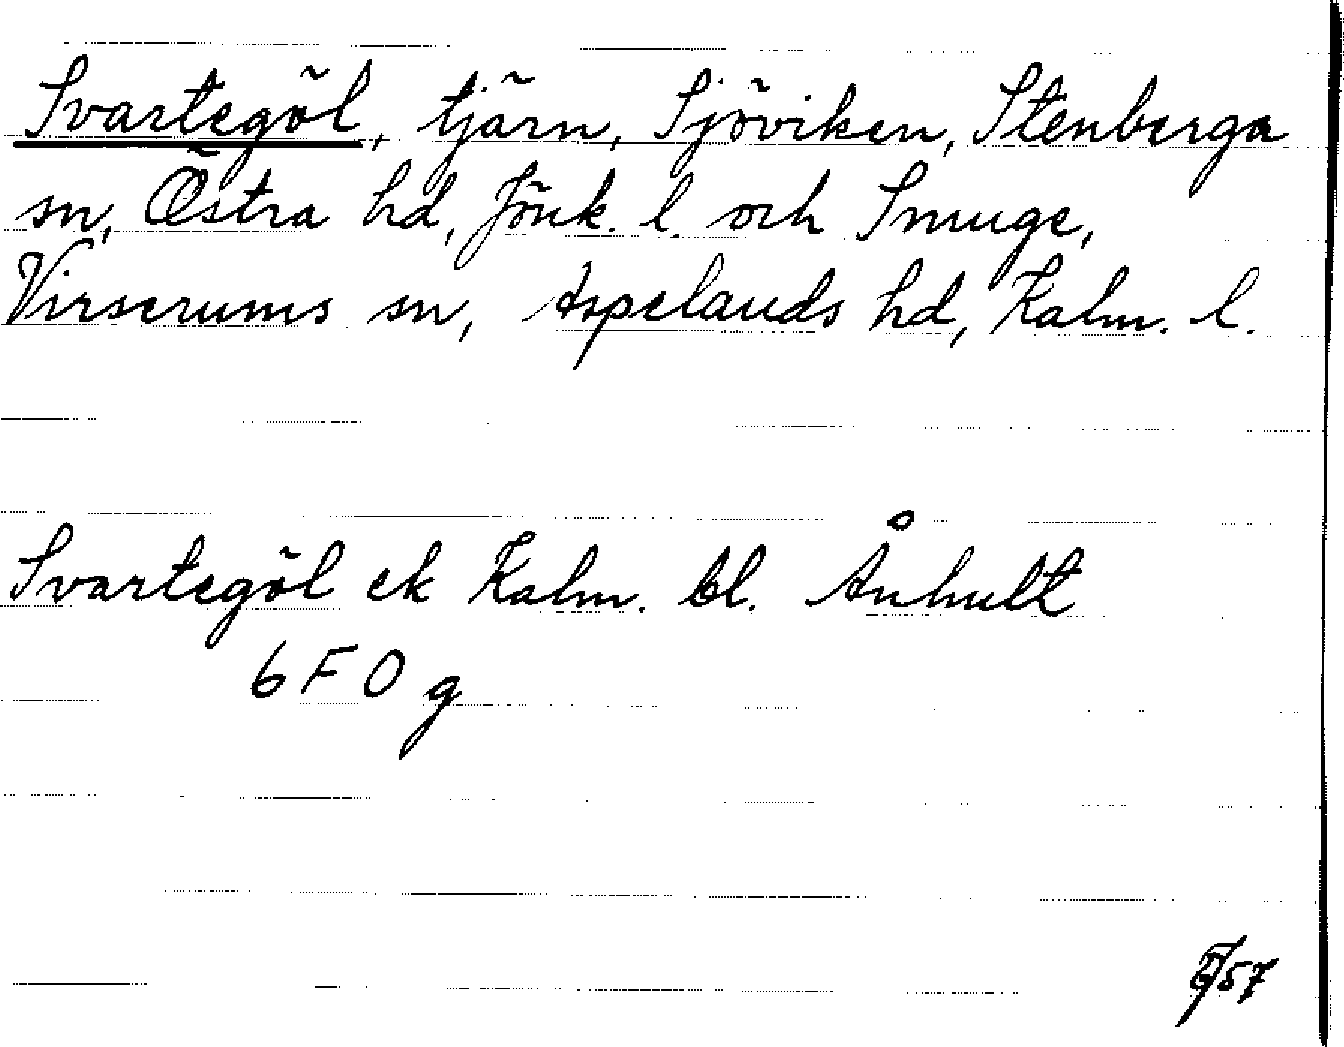 Svartegöl, tjärn, Sjöviken, Stenberga
sn, Östra hd, Jönk. l. och Smuge,
Virserums sn, Aspelands hd, Kalm. l.
Svartegöl ek Kalm. bl. Ånhult
6 F 0 g
57